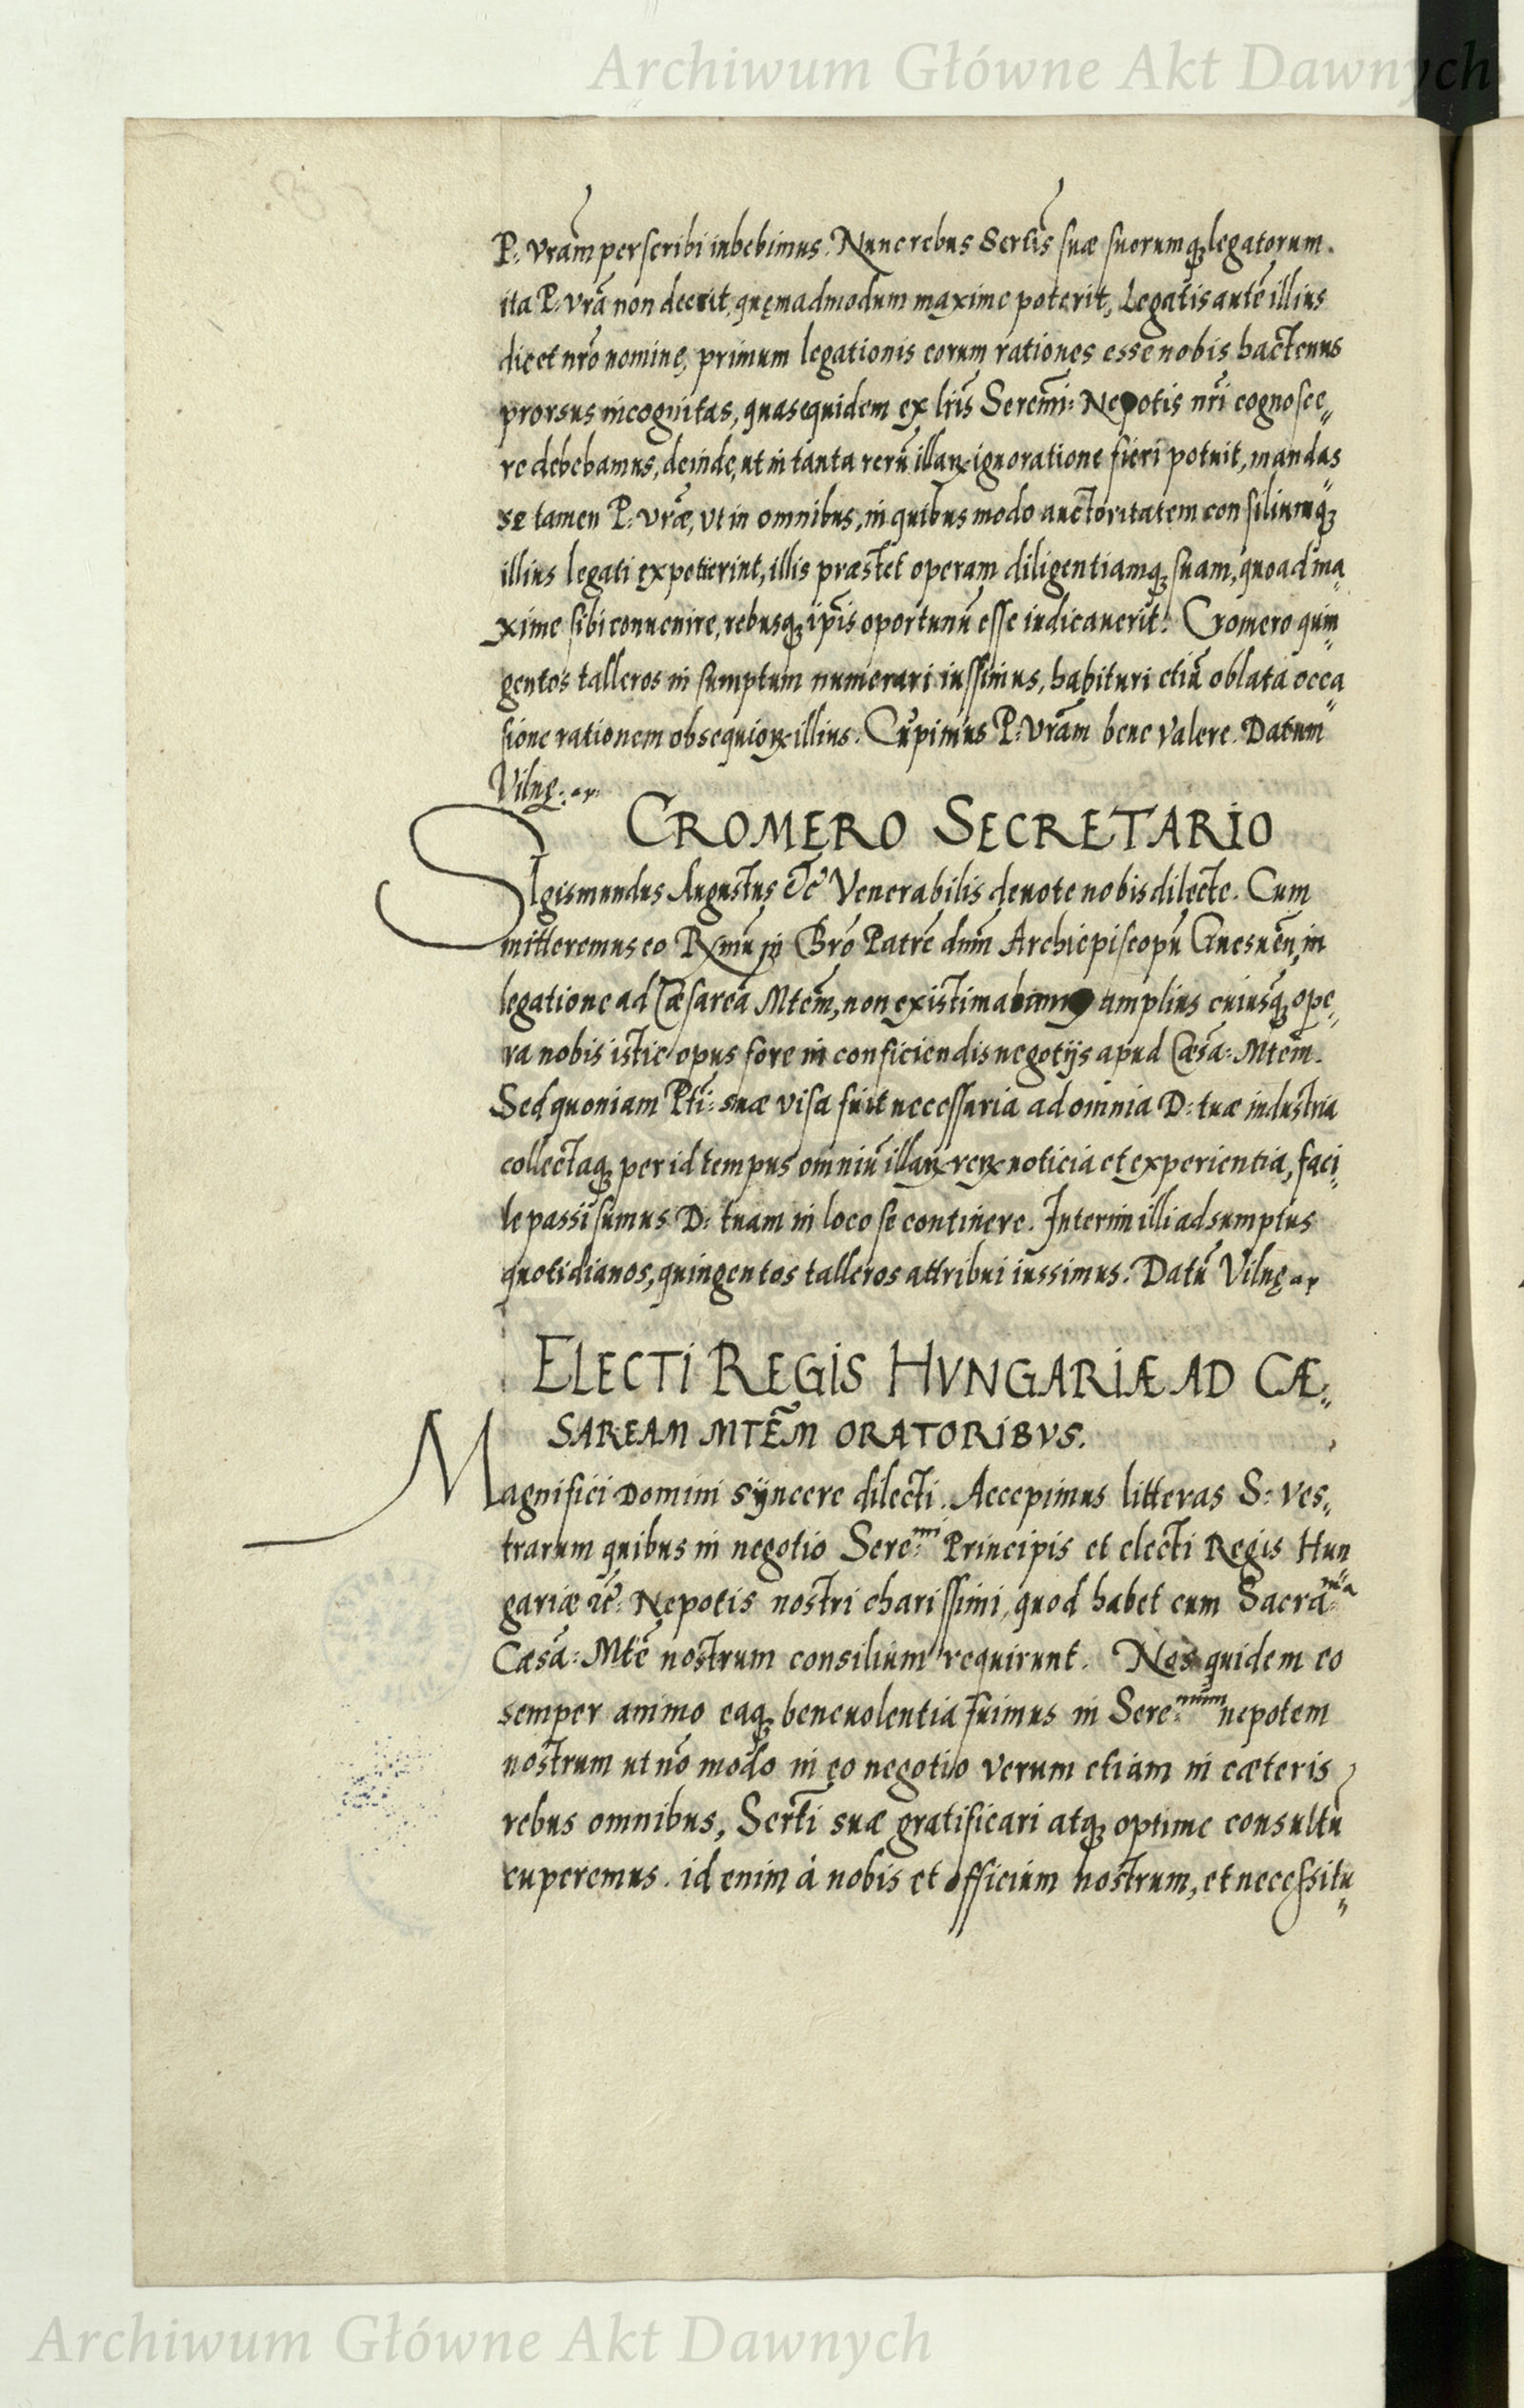 Archiwum Główne Akt Dawnych
P: vrām perscribi iubebimus. Nunc rebus Sertīs suæ suorumq; legatorum.
ita P. vrā non deerit, quęmadmodum maxime poterit, Legatis autē illius
dicet nrō nominę, primum legationis eorum rationes esse nobis hactenus
prorsus incognitas, quas equidem ex lrīs Serenī: Nepotis nrī cognosce„
re debebamus, deinde, ut in tanta rerū illaꝝ ignoratione fieri potuit, mandas„
se tamen P: vrǣ, vt in omnibus, in quibus modo auctoritatem consiliumq;
illius legati expetierint, illis præstet operam diligentiamq; suam, quoad ma„
xime sibi conuenire, rebusq; ipīs oportunū esse iudicauerit. Cromero quin„
gentos talleros in sumptum numerari iussimus, habituri etiā oblata occa„
sione rationem obsequioꝝ illius. Cupimus P: vrām bene valere. Datum
Vilnę.
CROMERO SECRETARIO
SIgismundus Augustus &c̄ Venerabilis deuote nobis dilecte. Cum
mitteremus eo Rmū in Xrō Patrē dnm̄ Archiepiscopū Gnesnēn, in
legatione ad Cæsareā Mtēm, non existimabamus amplius cuiusq; ope„
ra nobis istic opus fore in conficiendis negotijs apud Cæsā: Mtēm.
Sed quoniam Ptī: suæ visa fuit necessaria ad omnia D: tuæ industria
collectaq; per id tempus omniū illaꝝ reꝝ noticia et experientia, faci„
le passi sumus D: tuam in loco se continere. Interim illi ad sumptus
quotidianos, quingentos talleros attribui iussimus. Datū Vilnę
ELECTI REGIS HVNGARIÆ AD CÆ„
SAREAM MTĒM ORATORIBVS.
Magnifici Domini sÿncere dilecti. Accepimus litteras S: ves„
trarum quibus in negotio Sere:mi Principis et electi Regis Hun„
gariæ &c̄: Nepotis nostri charissimi, quod habet cum Sacrā:ma
Cæsā: Mtē nostrum consilium requirunt. Nos quidem eo
semper animo eaq; beneuolentia fuimus in Sere:mum nepotem
nostrum ut nō modo in eo negotio verum etiam in cæteris
rebus omnibus, Sertī suæ gratificari atq; optime consultū
cuperemus. id enim à nobis et officium nostrum, et necessitu„
Archiwum Główne Akt Dawnych